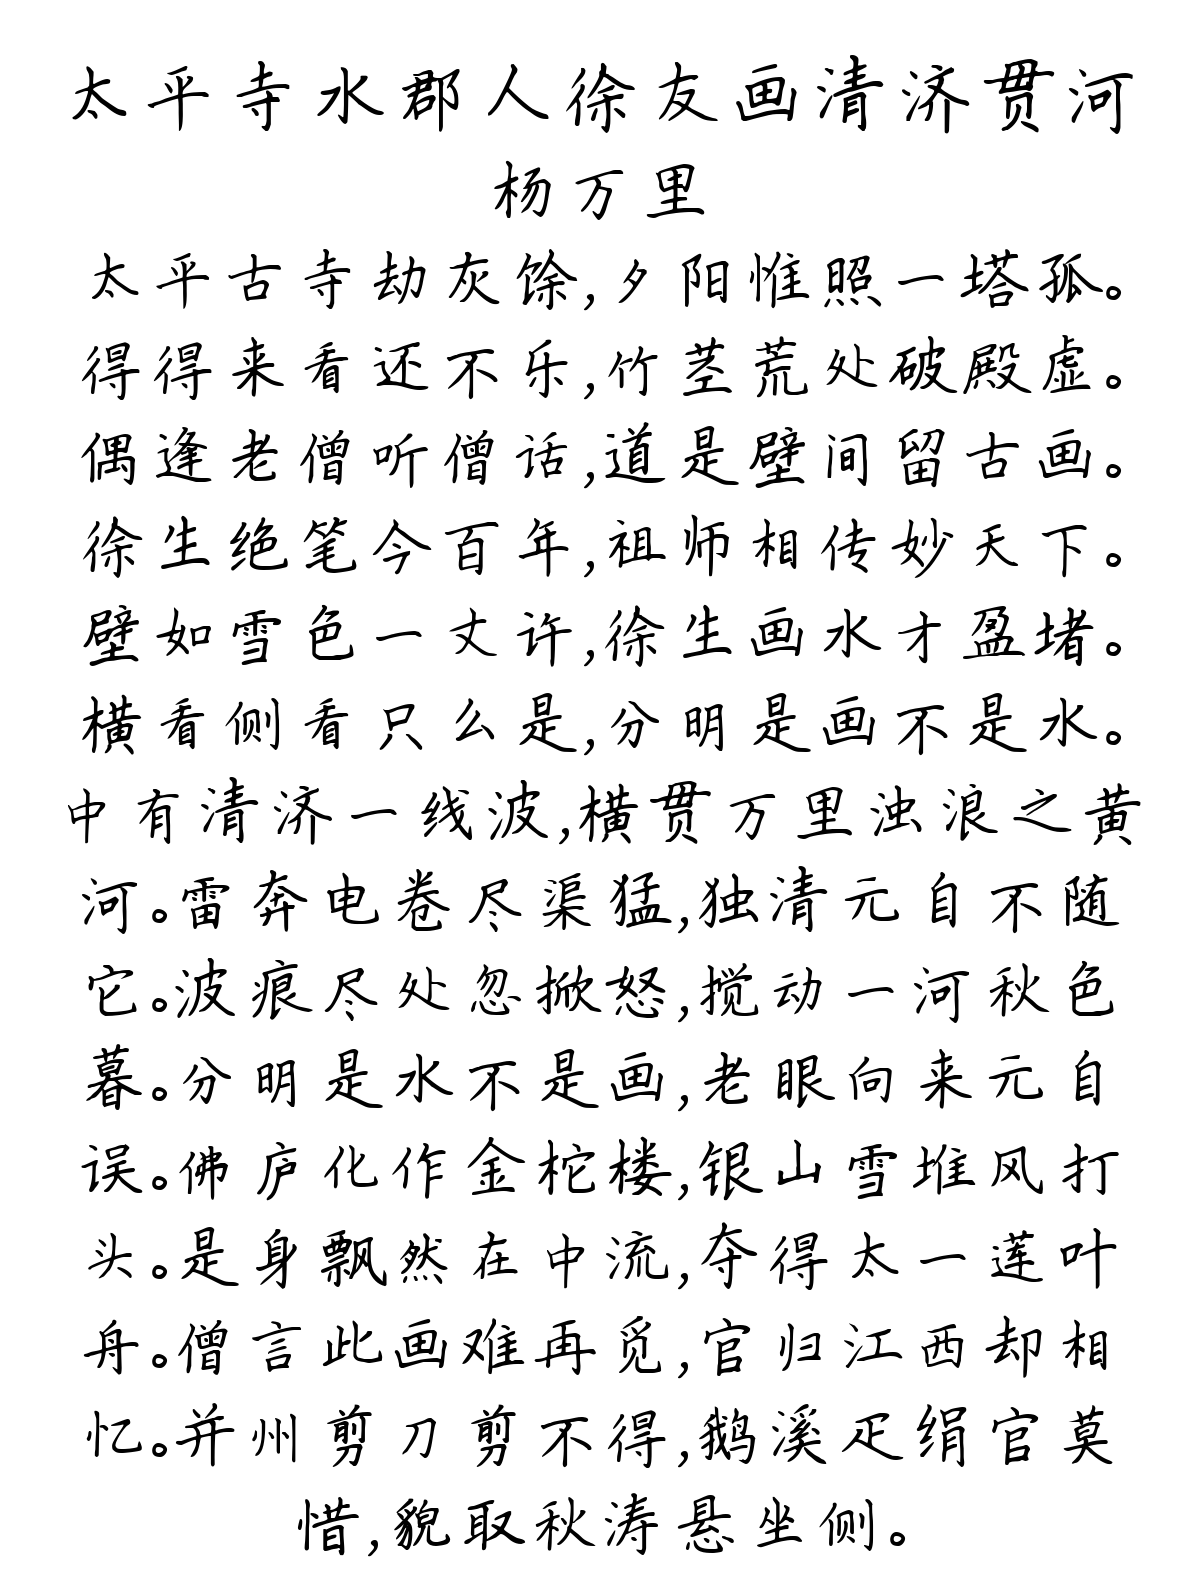 太平寺水郡人徐友画清济贯河
杨万里
太平古寺劫灰馀,夕阳惟照一塔孤。
得得来看还不乐,竹茎荒处破殿虚。
偶逢老僧听僧话,道是壁间留古画。
徐生绝笔今百年,祖师相传妙天下。
壁如雪色一丈许,徐生画水才盈堵。
横看侧看只么是,分明是画不是水。
中有清济一线波,横贯万里浊浪之黄
河。雷奔电卷尽渠猛,独清元自不随
它。波痕尽处忽掀怒,搅动一河秋色
暮。分明是水不是画,老眼向来元自
误。佛庐化作金柁楼,银山雪堆风打
头。是身飘然在中流,夺得太一莲叶
舟。僧言此画难再觅,官归江西却相
忆。并州剪刀剪不得,鹅溪疋绢官莫
惜,貌取秋涛悬坐侧。